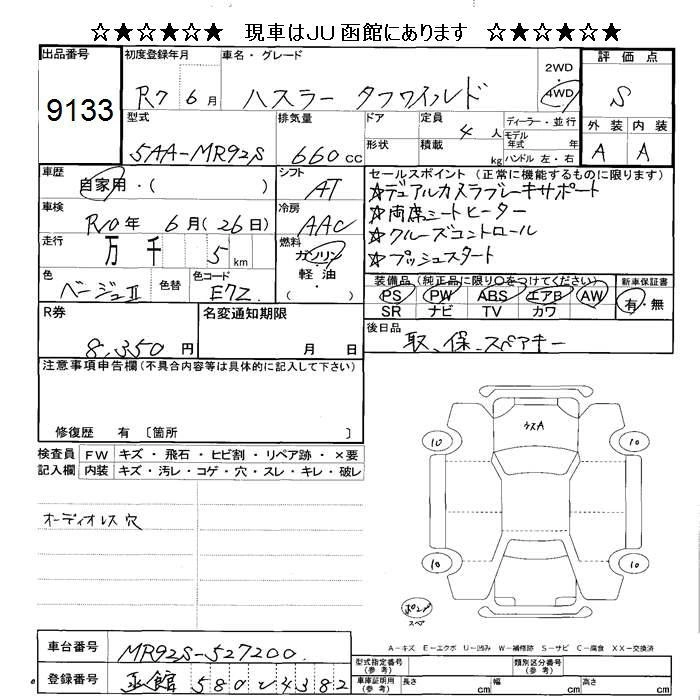 ☆★☆★☆★ 現車はJU函館にあります ☆★☆★☆★
出品番号 初度登録年月 車名・グレード 2WD 4WD 評価点
9133 R7 6月 ハスラー タフワイルド S
型式 排気量 ドア 定員 ディーラー・並行 外装 内装
5AA-MR92S 660 cc 4人 モデル年式 年 A A
形状 積載 kg ハンドル 左・右
車歴 シフト セールスポイント (正常に機能するものに限ります)
自家用・( ) AT ☆デュアルカメラブレーキサポート
車検 冷房 ☆両席シートヒーター
R10年 6月(26日) AAC ☆クルーズコントロール
走行 燃料 ☆プッシュスタート
万 千 5 km ガソリン
軽油
( )
色 色替 色コード 装備品(純正品に限り○をつけてください) 新車保証書
ベージュⅡ E7Z PS PW ABS エアB AW 有・無
SR ナビ TV カワ
R券 名変通知期限 後日品
8,350円 月 日 取、保、スペアキー
注意事項申告欄(不具合内容等は具体的に記入して下さい)
修復歴 有 〔箇所 〕
検査員 FW キズ ・ 飛石 ・ ヒビ割 ・ リペア跡 ・ ×要
記入欄 内装 キズ・汚レ・コゲ・穴・スレ・キレ・破レ
オーディオレス 穴
ケスA
10 10
10 10
スペア
A-キズ E-エクボ U-凹み W-補修跡 S-サビ C-腐食 XX-交換済
車台番号 MR92S-527200
登録番号 函館 580 と 4382
型式指定番号(参考) 類別区分番号(参考)
車庫証明用(参考) 長さ cm 幅 cm 高さ cm